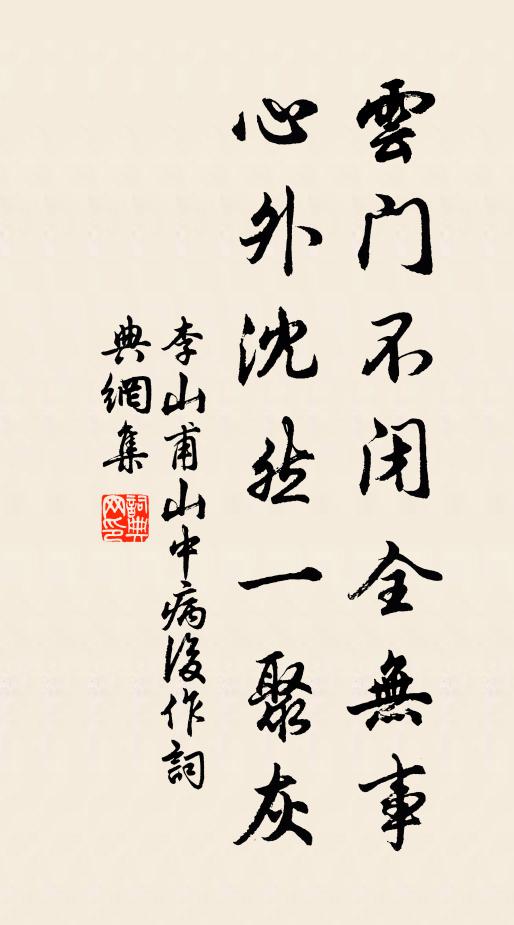 雲門不闭全無事
心外沈然一聚灰
李山甫山中病後作詞
典網集
詞典網印